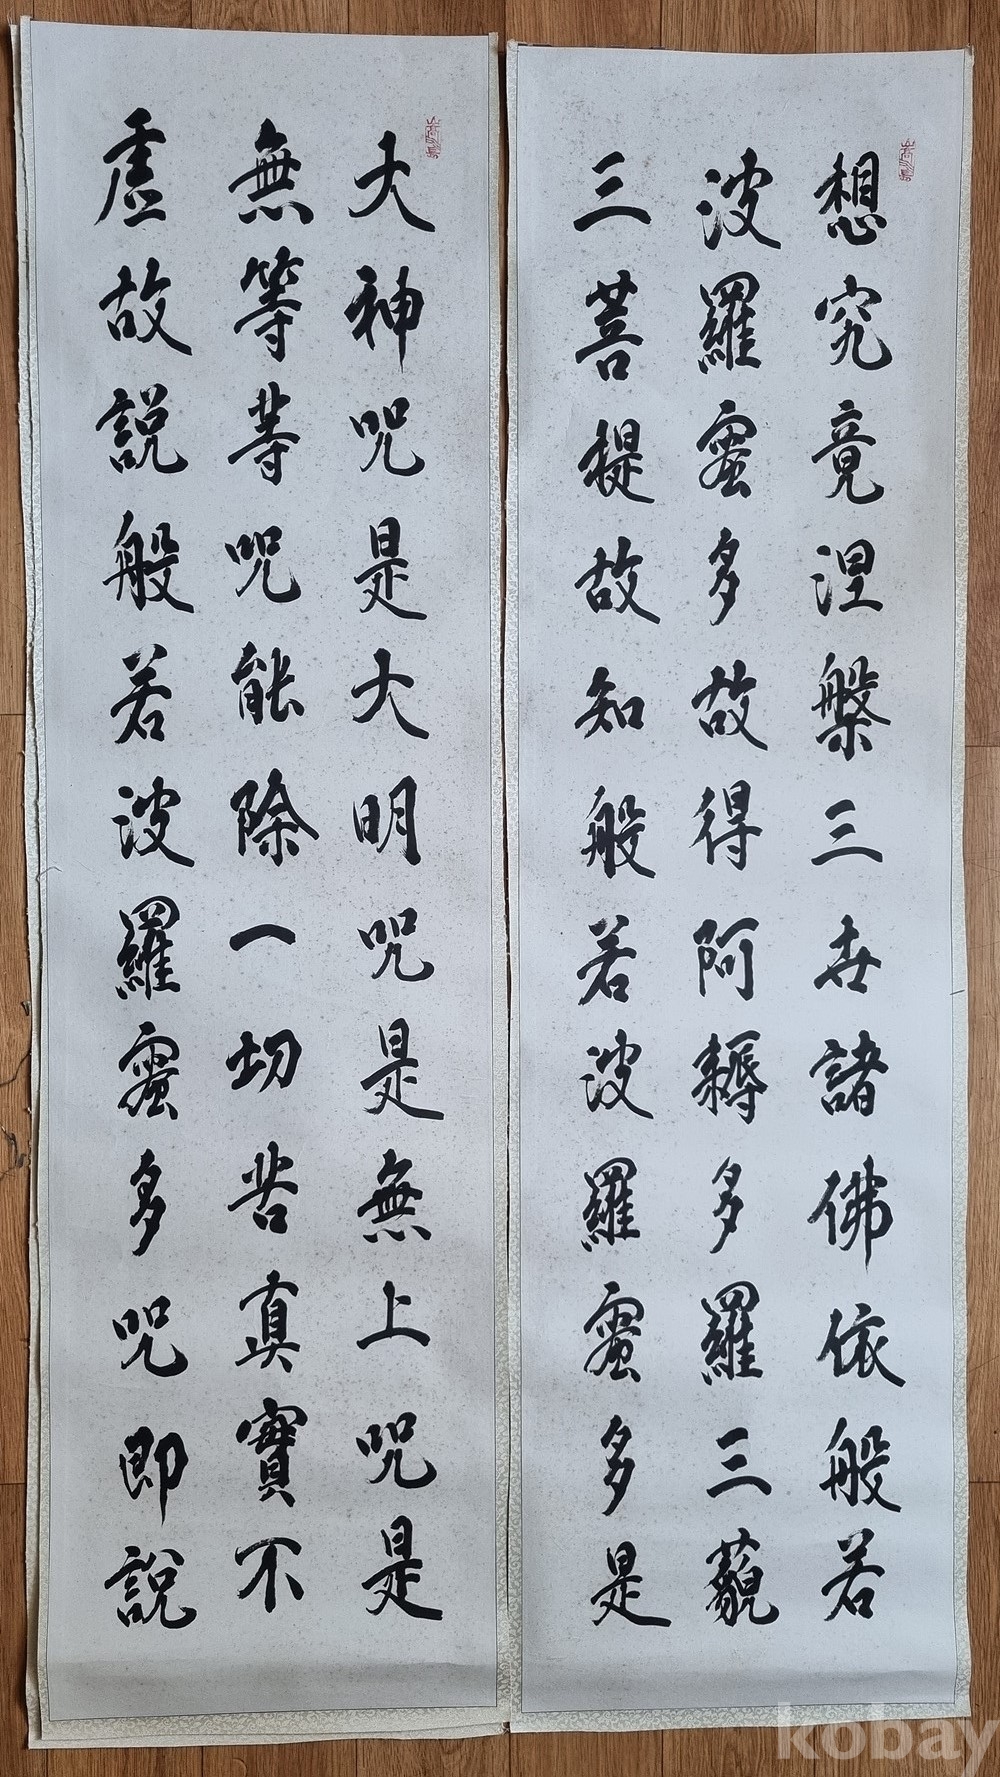 想究竟涅槃三世諸佛依般若
波羅蜜多故得阿耨多羅三藐
三菩提故知般若波羅蜜多是
大神咒是大明咒是無上咒是
無等等咒能除一切苦真實不
虛故說般若波羅蜜多咒即說
kobay